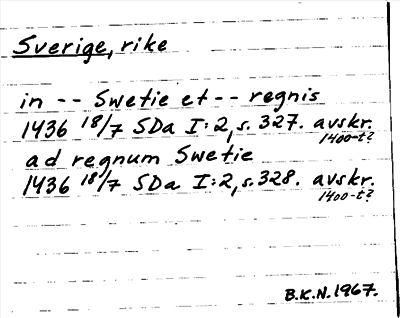 Sverige, rike
in -- Swetie et -- regnis
1436 18/7 SDa I:2, s. 327. avskr.
1400-t?
ad regnum Swetie
1436 18/7 SDa I:2, s. 328. avskr.
1400-t?
B.K.N. 1967.